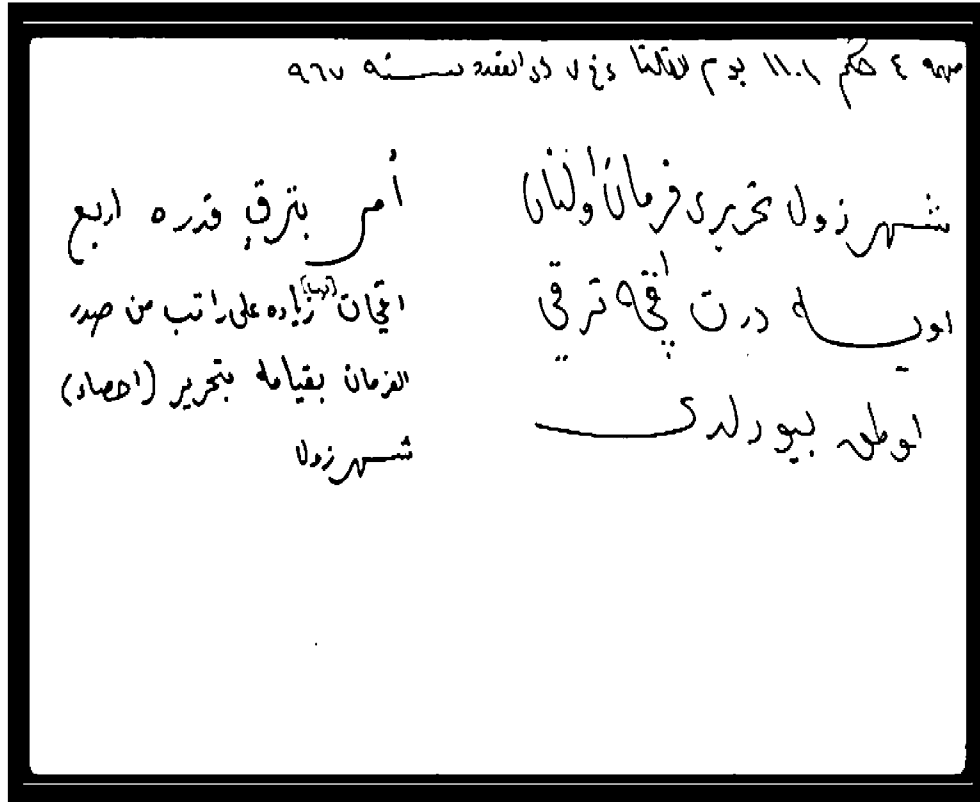 مهمه ٤ حكم ١١٠١ يوم الثلثا في ٧ ذى القعده سنه ٩٦٧
شهرزول تحريرى فرمان اولنان
درت اقچه ترقي
بيورلدى
أمر بترقٍ قدره اربع
اقچات (يوميا) زياده على راتب من صدر
الفرمان بقيامه بتحرير (احصاء)
شهرزول